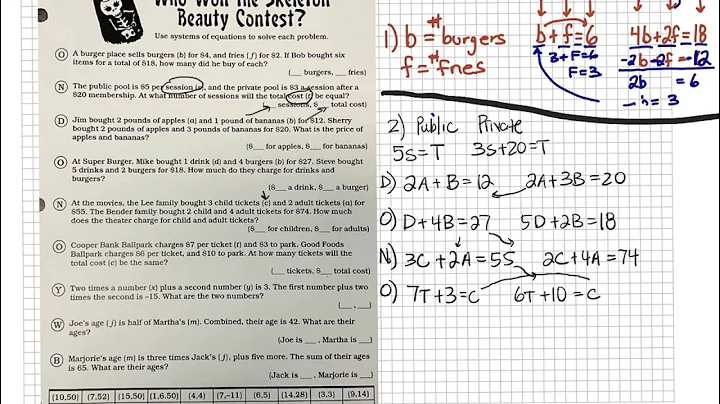 Who Won the Skeleton
Beauty Contest?
Use systems of equations to solve each problem.
O A burger place sells burgers (b) for $4, and fries (f) for $2. If Bob bought six
items for a total of $18, how many did he buy of each?
(__ burgers, __ fries)
N The public pool is $5 per session (s), and the private pool is $3 a session after a
$20 membership. At what number of sessions will the total cost (t) be equal?
(__ sessions, $__ total cost)
D Jim bought 2 pounds of apples (a) and 1 pound of bananas (b) for $12. Sherry
bought 2 pounds of apples and 3 pounds of bananas for $20. What is the price of
apples and bananas?
($__ for apples, $__ for bananas)
O At Super Burger, Mike bought 1 drink (d) and 4 burgers (b) for $27. Steve bought
5 drinks and 2 burgers for $18. How much do they charge for drinks and
burgers?
($__ a drink, $__ a burger)
N At the movies, the Lee family bought 3 child tickets (c) and 2 adult tickets (a) for
$55. The Bender family bought 2 child and 4 adult tickets for $74. How much
does the theater charge for child and adult tickets?
($__ for children, $__ for adults)
O Cooper Bank Ballpark charges $7 per ticket (t) and $3 to park. Good Foods
Ballpark charges $6 per ticket, and $10 to park. At how many tickets will the
total cost (c) be the same?
(__ tickets, $__ total cost)
Y Two times a number (x) plus a second number (y) is 3. The first number plus two
times the second is -15. What are the two numbers?
(__, __)
W Joe's age (j) is half of Martha's (m). Combined, their age is 42. What are their
ages?
(Joe is __, Martha is __)
B Marjorie's age (m) is three times Jack's (j), plus five more. The sum of their ages
is 65. What are their ages?
(Jack is __, Marjorie is __)
(10,50) (7,52) (15,50) (1,6.50) (4,4) (7,-11) (6,5) (14,28) (3,3) (9,14)
1) b = # burgers
f = # fries
b + f = 6
3+F=6
F=3
4b+2f=18
-2b-2f=-12
2b = 6
b = 3
2) Public Private
5s=T 3s+20=T
D) 2A+B=12 2A+3B=20
O) D+4B=27 5D+2B=18
N) 3C+2A=55 2C+4A=74
O) 7T+3=C 6T+10=C